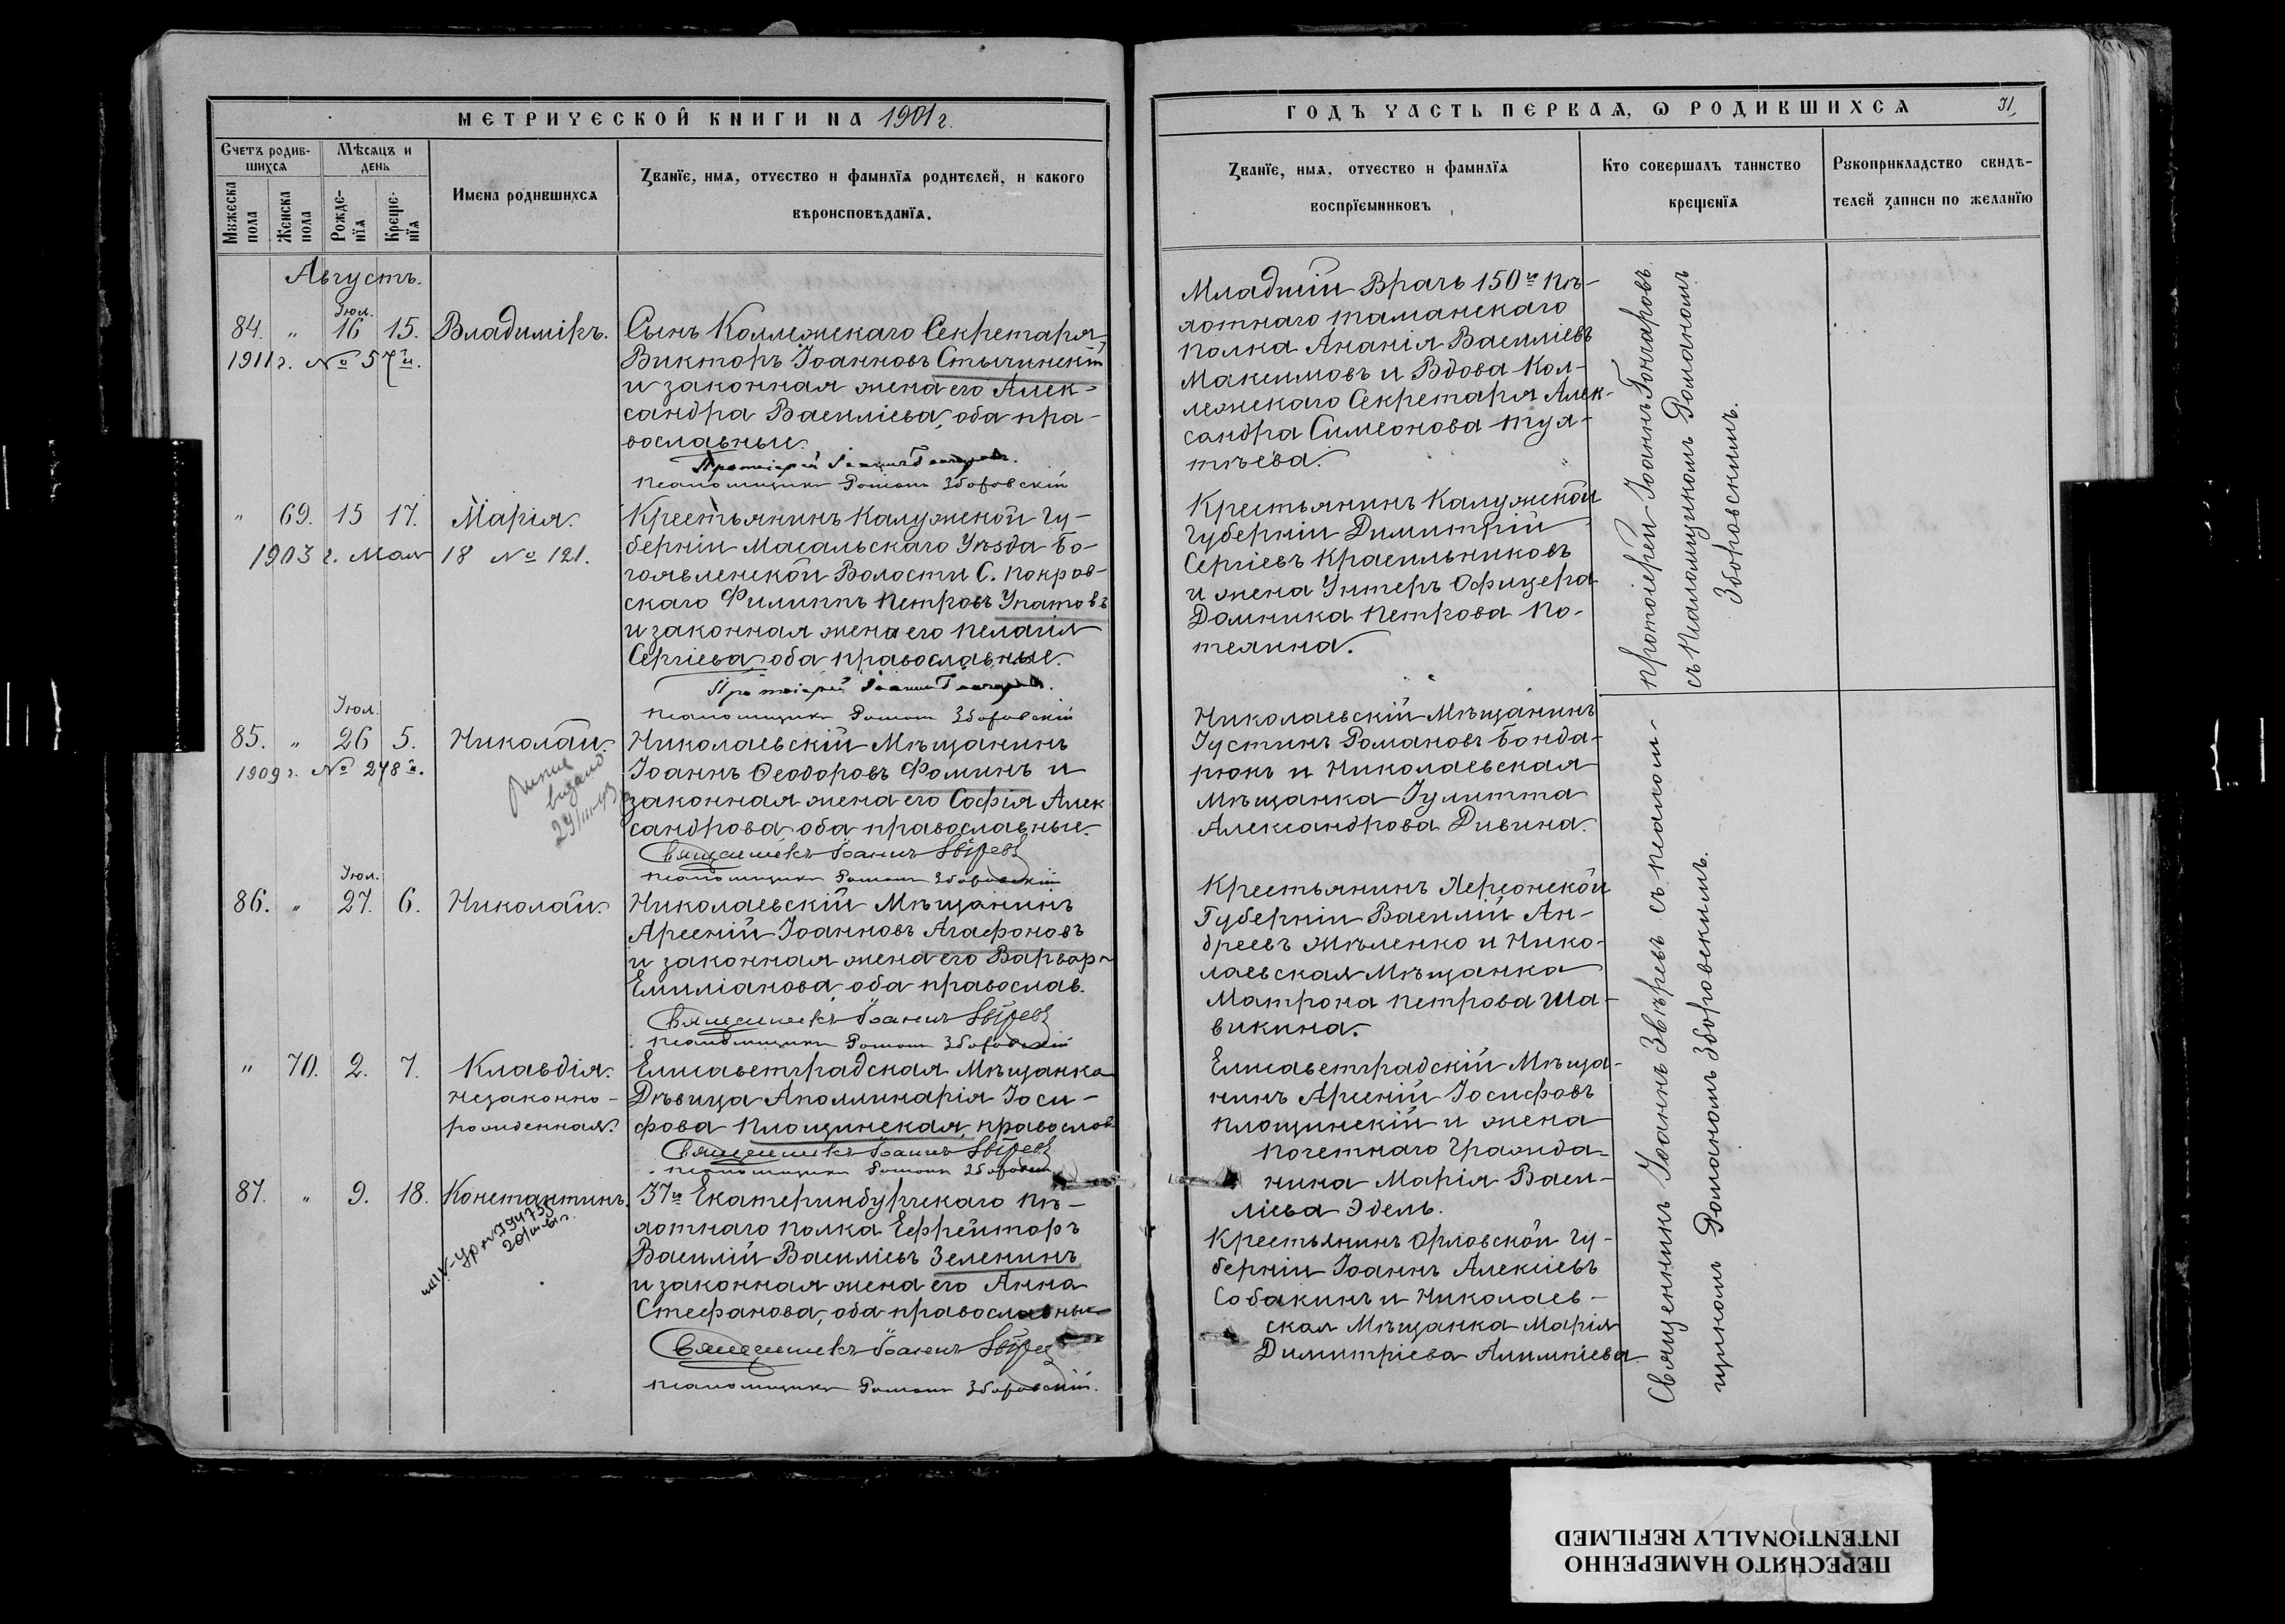 МЕТРИЧЕСКОЙ КНИГИ НА 1901 г.
Счетъ родившихся
Мѣсяцъ и день
Мужеска пола
Женска пола
Рожденїя
Крещенїя
Имена родившихся
Званїе, имя, отчество и фамилїя родителей, и какого
вѣроисповѣданїя.
Августъ.
84. " Іюл. 16 15. Владиміръ.
1911 г. № 57й.
Сынъ Коллежскаго Секретаря
Викторъ Іоанновъ Стычинскій
и законная жена его Алек-
сандра Василіева, оба пра-
вославные.
Протоіерей Іоаннъ Гончаровъ.
Псаломщикъ Романъ Зборовскій
" 69. 15 17. Марія.
1903 г. Мая 18 № 121.
Крестьянинъ Калужской гу-
берніи Масальскаго Уѣзда Бо-
гоявленской Волости С. Покров-
скаго Филиппъ Петровъ Упатовъ
и законная жена его Пелагія
Сергіева, оба православные.
Протоіерей Іоаннъ Гончаровъ.
Псаломщикъ Романъ Зборовскій
85. " Іюл. 26 5. Николай.
1909 г. № 278й.
видано
Николаевскій Мѣщанинъ
Іоаннъ Ѳеодоровъ Фоминъ и
законная жена его Софія Алек
сандрова, оба православные.
Священникъ Іоаннъ Звѣревъ
Псаломщикъ Романъ Зборовскій
86. " Іюл. 27. 6. Николай.
Николаевскій Мѣщанинъ
Арсеній Іоанновъ Агафоновъ
и законная жена его Варвара
Емиліанова, оба православ.
Священникъ Іоаннъ Звѣревъ
Псаломщикъ Романъ Зборовскій
" 70. 2. 7. Клавдія.
незаконно-
рожденная.
Елисаветградская Мѣщанка
Дѣвица Аполлинарія Іоси-
фова Площинская, православ.
Священникъ Іоаннъ Звѣревъ
Псаломщикъ Романъ Зборовскій
87. " 9. 18. Константинъ.
37го Екатеринбургскаго Пѣ-
хотнаго полка Ефрейторъ
Василій Василіевъ Зеленинъ
и законная жена его Анна
Стефанова, оба православные
Священникъ Іоаннъ Звѣревъ
Псаломщикъ Романъ Зборовскій.
ГОДЪ ЧАСТЬ ПЕРВАЯ, Ѡ РОДИВШИХСЯ
31
Званїе, имя, отчество и фамилїя
воспрїемниковъ
Кто совершалъ таинство
крещенїя
Рукоприкладство свидѣ-
телей записи по желанїю
Младшій Врачъ 150го Пѣ-
хотнаго Таманскаго
полка Ананія Василіевъ
Максимовъ и Вдова Кол-
лежскаго Секретаря Алек-
сандра Симеонова
Крестьянинъ Калужской
Губерніи Димитрій
Сергіевъ Красильниковъ
и жена Унтеръ Офицера
Домника Петрова По-
телина.
Николаевскій Мѣщанинъ
Іустинъ Романовъ Бонда-
рюкъ и Николаевская
Мѣщанка Іулитта
Александрова Дивина.
Крестьянинъ Херсонской
Губерніи Василій Ан-
дреевъ Мѣленко и Нико-
лаевская Мѣщанка
Матрона Петрова Ша-
викина.
Елисаветградскій Мѣща-
нинъ Арсеній Іосифовъ
Площинскій и жена
Почетнаго Гражда-
нина Марія Васи-
ліева Эдель.
Крестьянинъ Орловской гу-
берніи Іоаннъ Алексіевъ
Собакинъ и Николаев-
ская Мѣщанка Марія
Димитріева Алимпіева.
Протоіерей Іоаннъ Гончаровъ
съ Псаломщикомъ Романомъ
Зборовскимъ.
Священникъ Іоаннъ Звѣревъ съ Псалом-
щикомъ Романомъ Зборовскимъ.
ПЕРЕСНЯТО НАМЕРЕННО
INTENTIONALLY REFILMED